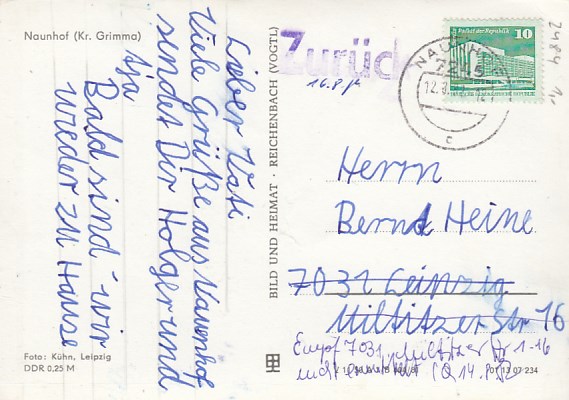 Naunhof (Kr. Grimma)
Lieber Vati
Viele Grüße aus Naunhof
sendet Dir Holger und
Aja
Bald sind wir
wieder zu Hause
Foto: Kühn, Leipzig
DDR 0,25 M
BILD UND HEIMAT · REICHENBACH (VOGTL)
Zurück
16.8
Palast der Republik 10
NAUNHOF
7245
12.8
c
2484
Herrn
Bernd Heine
7031 Leipzig
Miltitzer Str 16
Empf 7031 Miltitzer Str 1-16
01 13 07 234